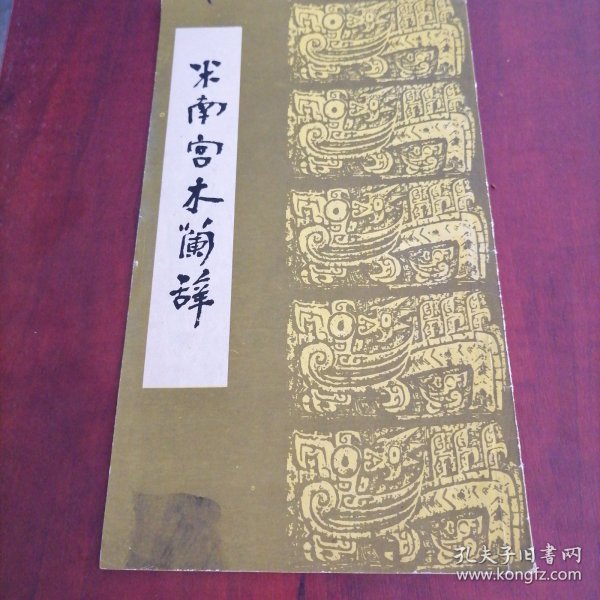 米南宫木兰辞
孔夫子旧书网
www.kongfz.com